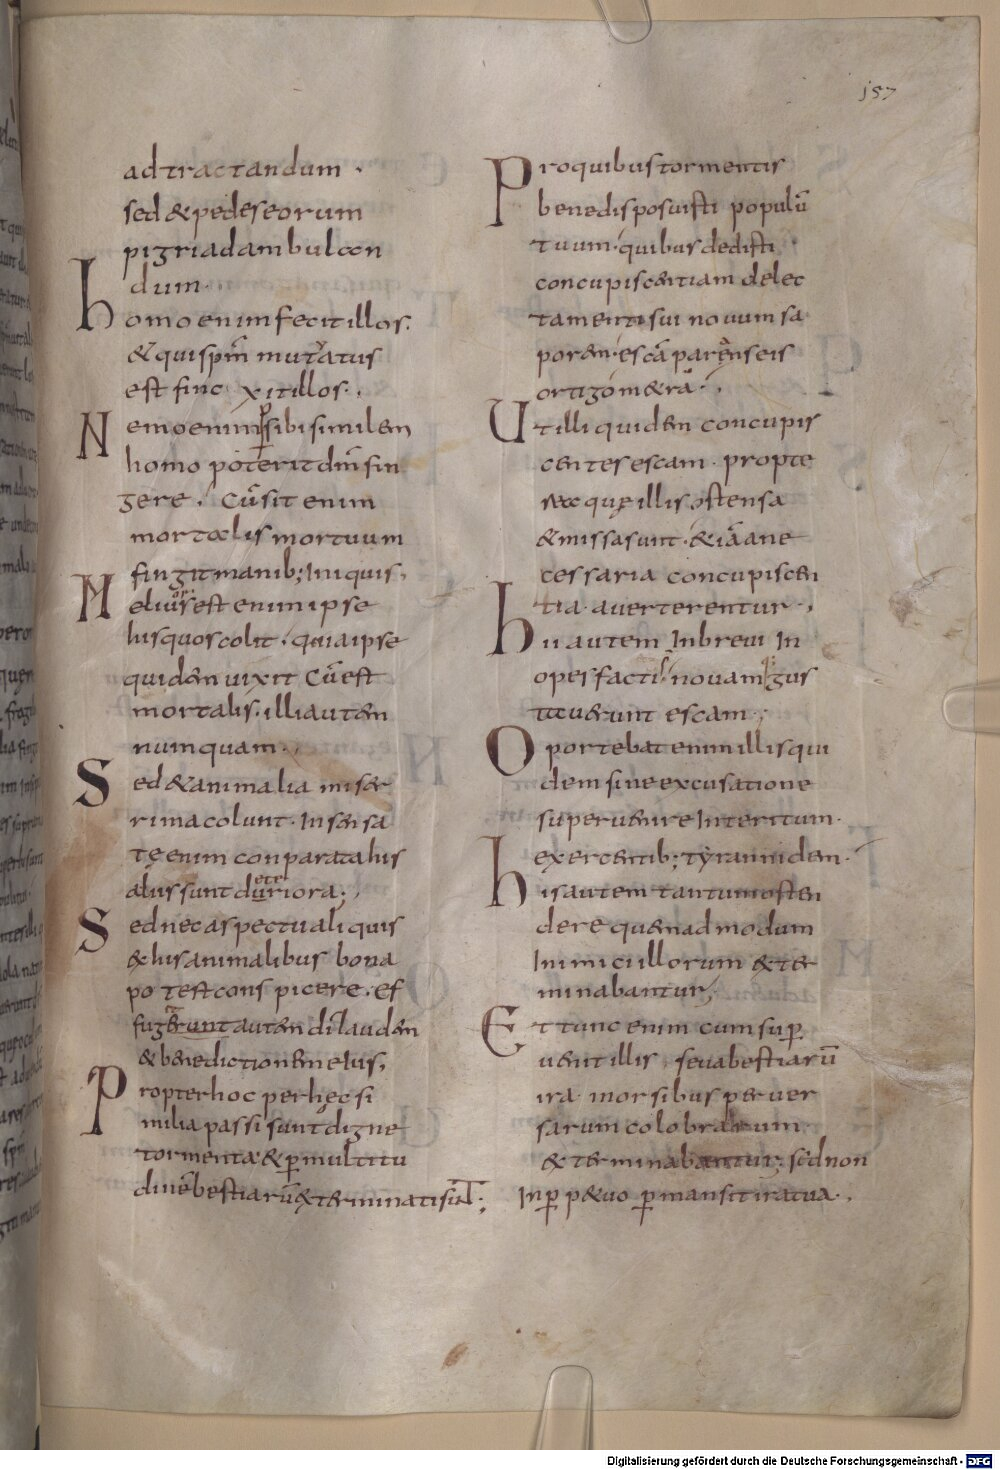 157
ad tractandum ·
sed & pedes eorum
pigri ad ambulan
dum·
homo enim fecit illos.
& qui sp̄m mutuatus
est finxit illos.
Nemo enim sibi similem
homo poterit dm̄ fin
gere. Cū sit enim
mortalis mortuum
fingit manib; Iniquis.
Melior est enim ipse
his quos colit. quia ipse
quidem uixit Cū est
mortalis. illi autem
numquam.
Sed & animalia miser
rima colunt. Insensa
tę enim conparata his
aliis sunt deteriora;
Sed nec aspectu aliquis
& his animalibus bona
potest conspicere. Ef
fugerunt autem dī laudem
& benedictionem eius;
Propter hoc per hęc si
milia passi sunt digne
tormenta & ꝑ multitu
dinē bestiarū exterminati sunt;
Pro quibus tormentis
bene disposuisti populū
tuum. quibus dedisti
concupiscentiam delec
tamenti sui nouum sa
porem. escā parens eis
ortigometrā.
Ut illi quidem concupis
centes escam. propte
ea quę illis ostensa
& missa sunt. & iā a ne
cessaria concupiscen
tia auerterentur.
hii autem In breui In
opes facti nouam gus
tauerunt escam;
Oportebat enim illis qui
dem sine excusatione
superuenire Interitum.
exercentib; tyrannidem.
his autem tantum osten
dere quemadmodum
Inimici illorum exter
minabantur;
Et tunc enim cum suꝑ
uenit illis seua bestiarū
ira morsibus peruer
sarum colobrarum
exterminabantur; sed non
In ꝑp&uo ꝑmansit ira tua.
Digitalisierung gefördert durch die Deutsche Forschungsgemeinschaft - DFG